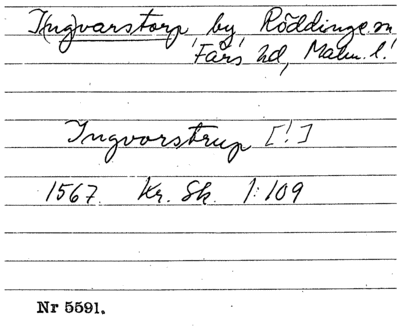 Ingvarstorp, by, Röddinge sn
Färs hd, Malm. l.
Ingvorstrup [!]
1567. Kr. Sk. 1:109
Nr 5591.